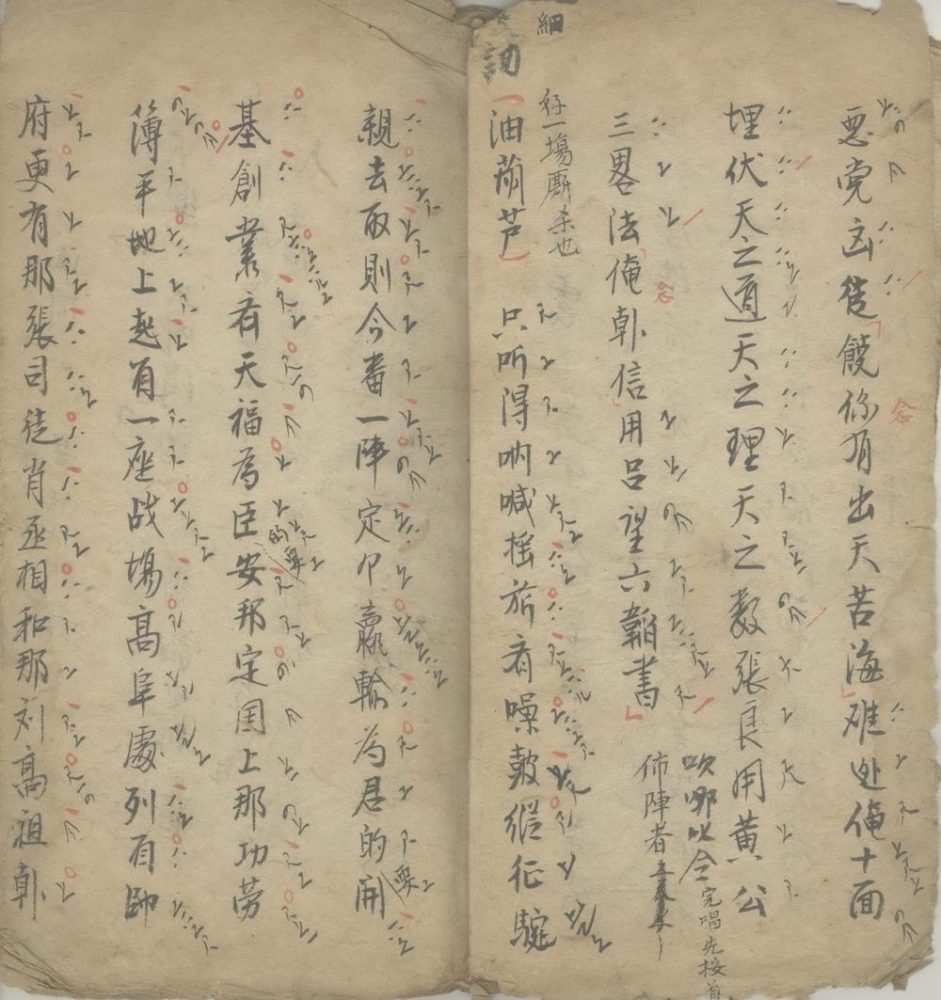 恶党凶徒饒你有出天苦海难逃俺十面
埋伏天之道天之理天之数張良用黄公
三畧法俺韓信用吕望六韜書
吹哪叱令完唱先按首
佈陣者
好一場厮杀也
細
油葫芦 只听得呐喊摇旂有噪皷緃征駞
親去取則今番一陣定个嬴輸為君的開
基創業有天福為臣的安邦定国上那功劳
簿平地上起有一座战場高阜處列有帥
府更有那張司徒肖丞相和那刘高祖韓